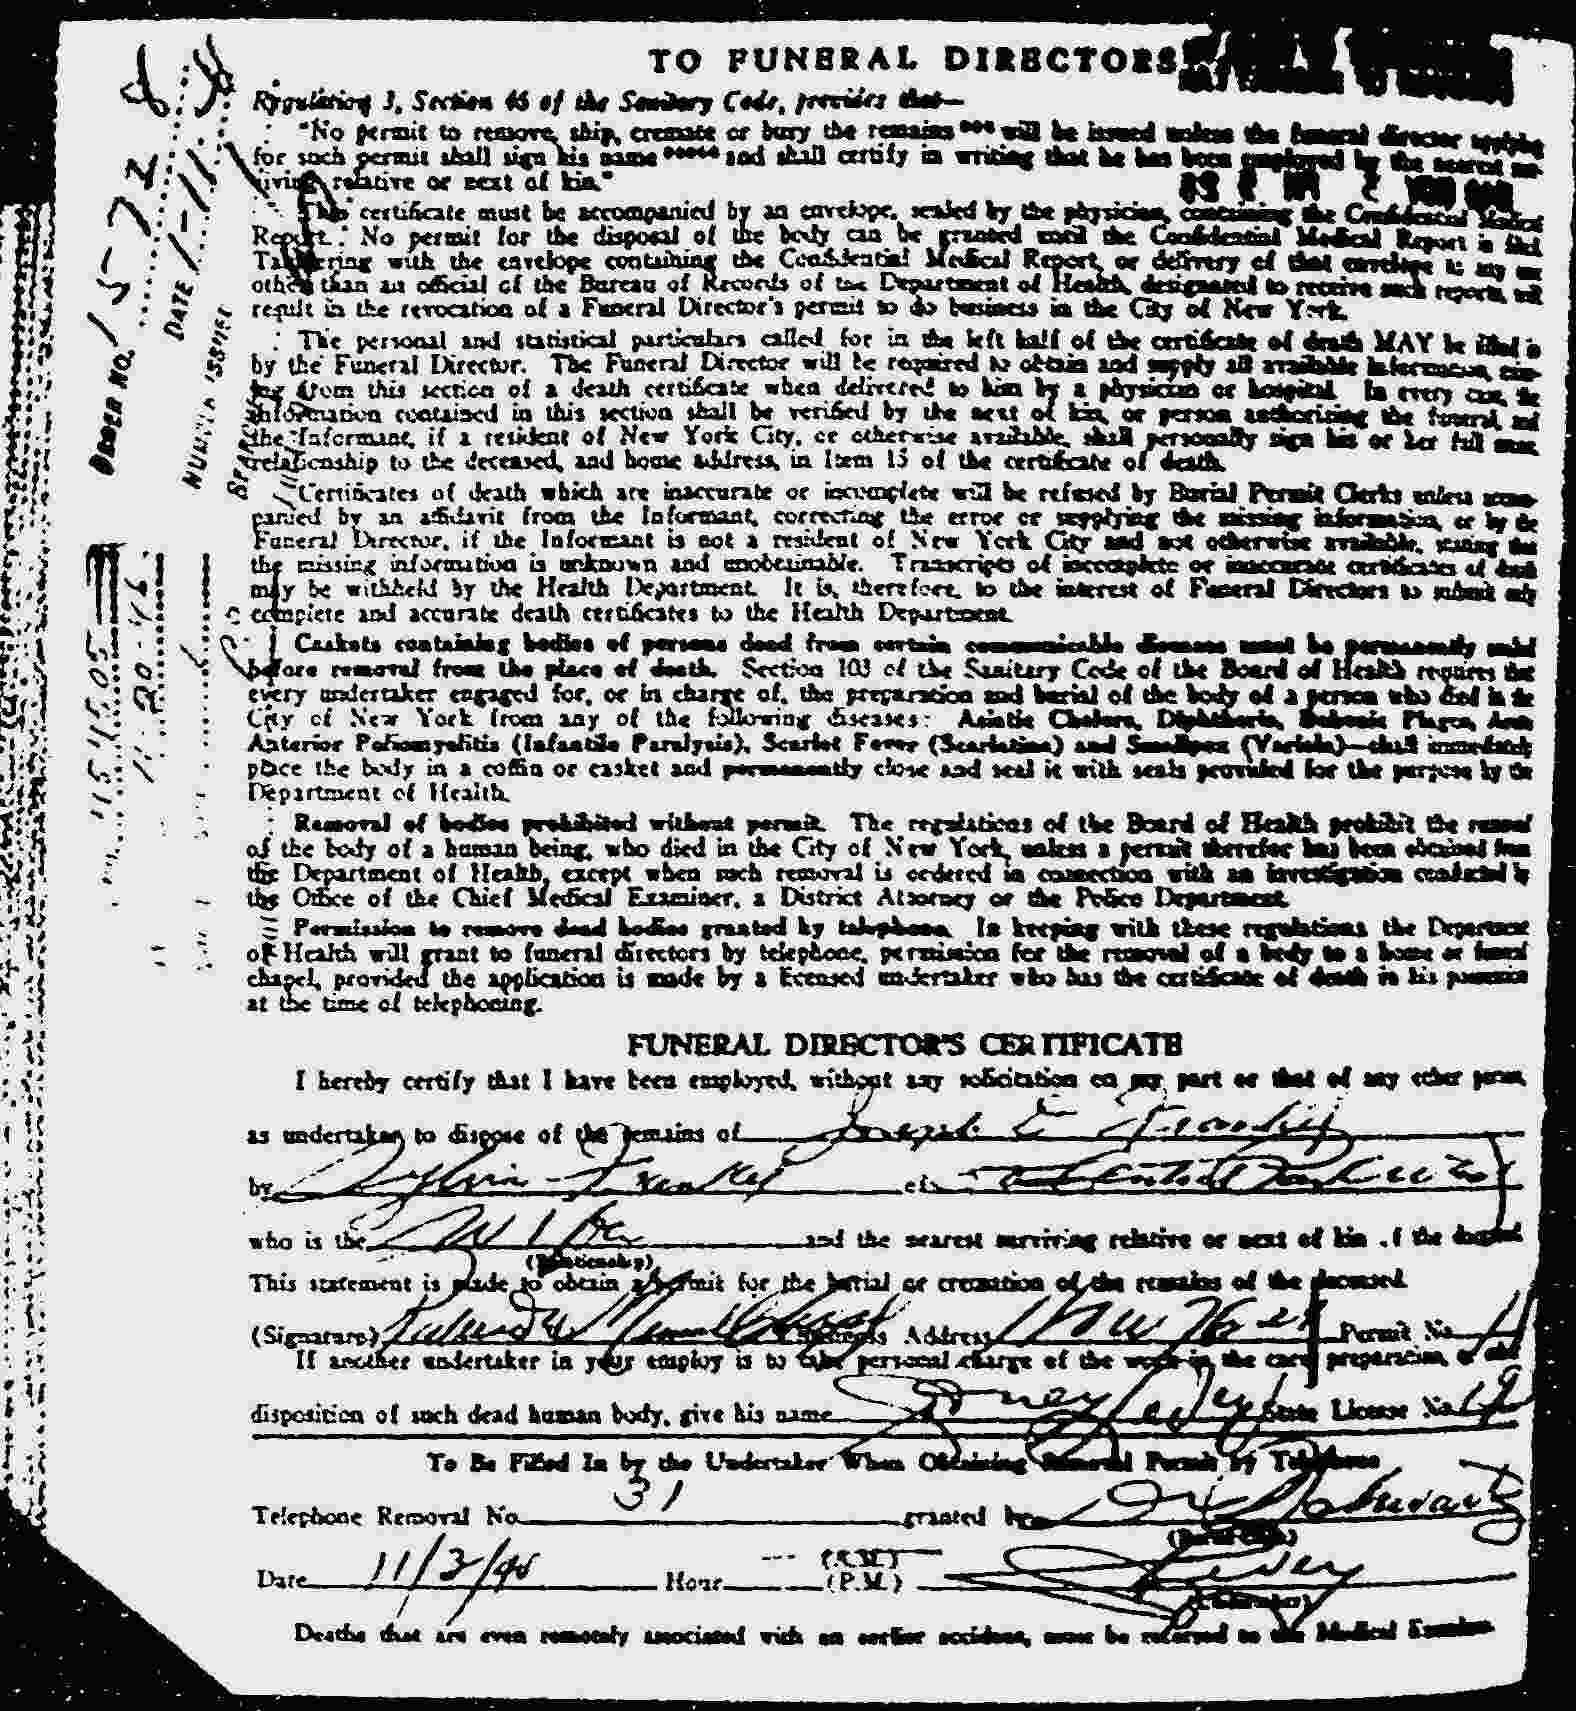 TO FUNERAL DIRECTORS
Regulation 3, Section 46 of the Sanitary Code, provides that—
"No permit to remove, ship, cremate or bury the remains *** will be issued unless the funeral director applying
for such permit shall sign his name ***** and shall certify in writing that he has been employed by the nearest sur-
viving relative or next of kin."
This certificate must be accompanied by an envelope, sealed by the physician, containing the Confidential Medical
Report. No permit for the disposal of the body can be granted until the Confidential Medical Report is filed.
Tampering with the envelope containing the Confidential Medical Report, or delivery of that envelope to any one
other than an official of the Bureau of Records of the Department of Health, designated to receive such reports, will
result in the revocation of a Funeral Director's permit to do business in the City of New York.
The personal and statistical particulars called for in the left half of the certificate of death MAY be filled in
by the Funeral Director. The Funeral Director will be required to obtain and supply all available information, miss-
ing from this section of a death certificate when delivered to him by a physician or hospital. In every case, the
information contained in this section shall be verified by the next of kin, or person authorizing the funeral, and
the Informant, if a resident of New York City, or otherwise available, shall personally sign his or her full name,
relationship to the deceased, and home address, in Item 15 of the certificate of death.
Certificates of death which are inaccurate or incomplete will be refused by Burial Permit Clerks unless accom-
panied by an affidavit from the Informant, correcting the error or supplying the missing information, or by the
Funeral Director, if the Informant is not a resident of New York City and not otherwise available, stating that
the missing information is unknown and unobtainable. Transcripts of incomplete or inaccurate certificates of death
may be withheld by the Health Department. It is, therefore, to the interest of Funeral Directors to submit only
complete and accurate death certificates to the Health Department.
Caskets containing bodies of persons dead from certain communicable diseases must be permanently sealed
before removal from the place of death. Section 103 of the Sanitary Code of the Board of Health requires that
every undertaker engaged for, or in charge of, the preparation and burial of the body of a person who died in the
City of New York from any of the following diseases: Asiatic Cholera, Diphtheria, Bubonic Plague, Acute
Anterior Poliomyelitis (Infantile Paralysis), Scarlet Fever (Scarlatina) and Smallpox (Variola)—shall immediately
place the body in a coffin or casket and permanently close and seal it with seals provided for the purpose by the
Department of Health.
Removal of bodies prohibited without permit. The regulations of the Board of Health prohibit the removal
of the body of a human being, who died in the City of New York, unless a permit therefor has been obtained from
the Department of Health, except when such removal is ordered in connection with an investigation conducted by
the Office of the Chief Medical Examiner, a District Attorney or the Police Department.
Permission to remove dead bodies granted by telephone. In keeping with these regulations the Department
of Health will grant to funeral directors by telephone, permission for the removal of a body to a home or funeral
chapel, provided the application is made by a licensed undertaker who has the certificate of death in his possession
at the time of telephoning.
FUNERAL DIRECTOR'S CERTIFICATE
I hereby certify that I have been employed, without any solicitation on my part or that of any other person,
as undertaker to dispose of the remains of Joseph E
by Sylvia of
who is the wife and the nearest surviving relative or next of kin of the deceased
(Relationship)
This statement is made to obtain a permit for the burial or cremation of the remains of the deceased.
(Signature) Business Address Permit No.
If another undertaker in your employ is to take personal charge of the work in the care, preparation, or
disposition of such dead human body, give his name Sidney State License No.
To Be Filled In by the Undertaker When Obtaining Removal Permit by Telephone
Telephone Removal No. 31 granted by Schwartz
Date 11/3/46 Hour (A.M.)
(P.M.)
(Undertaker)
Deaths that are even remotely associated with an earlier accident, must be referred to the Medical Examiner.
ORDER NO. 15728
DATE 1-11
11-20-46